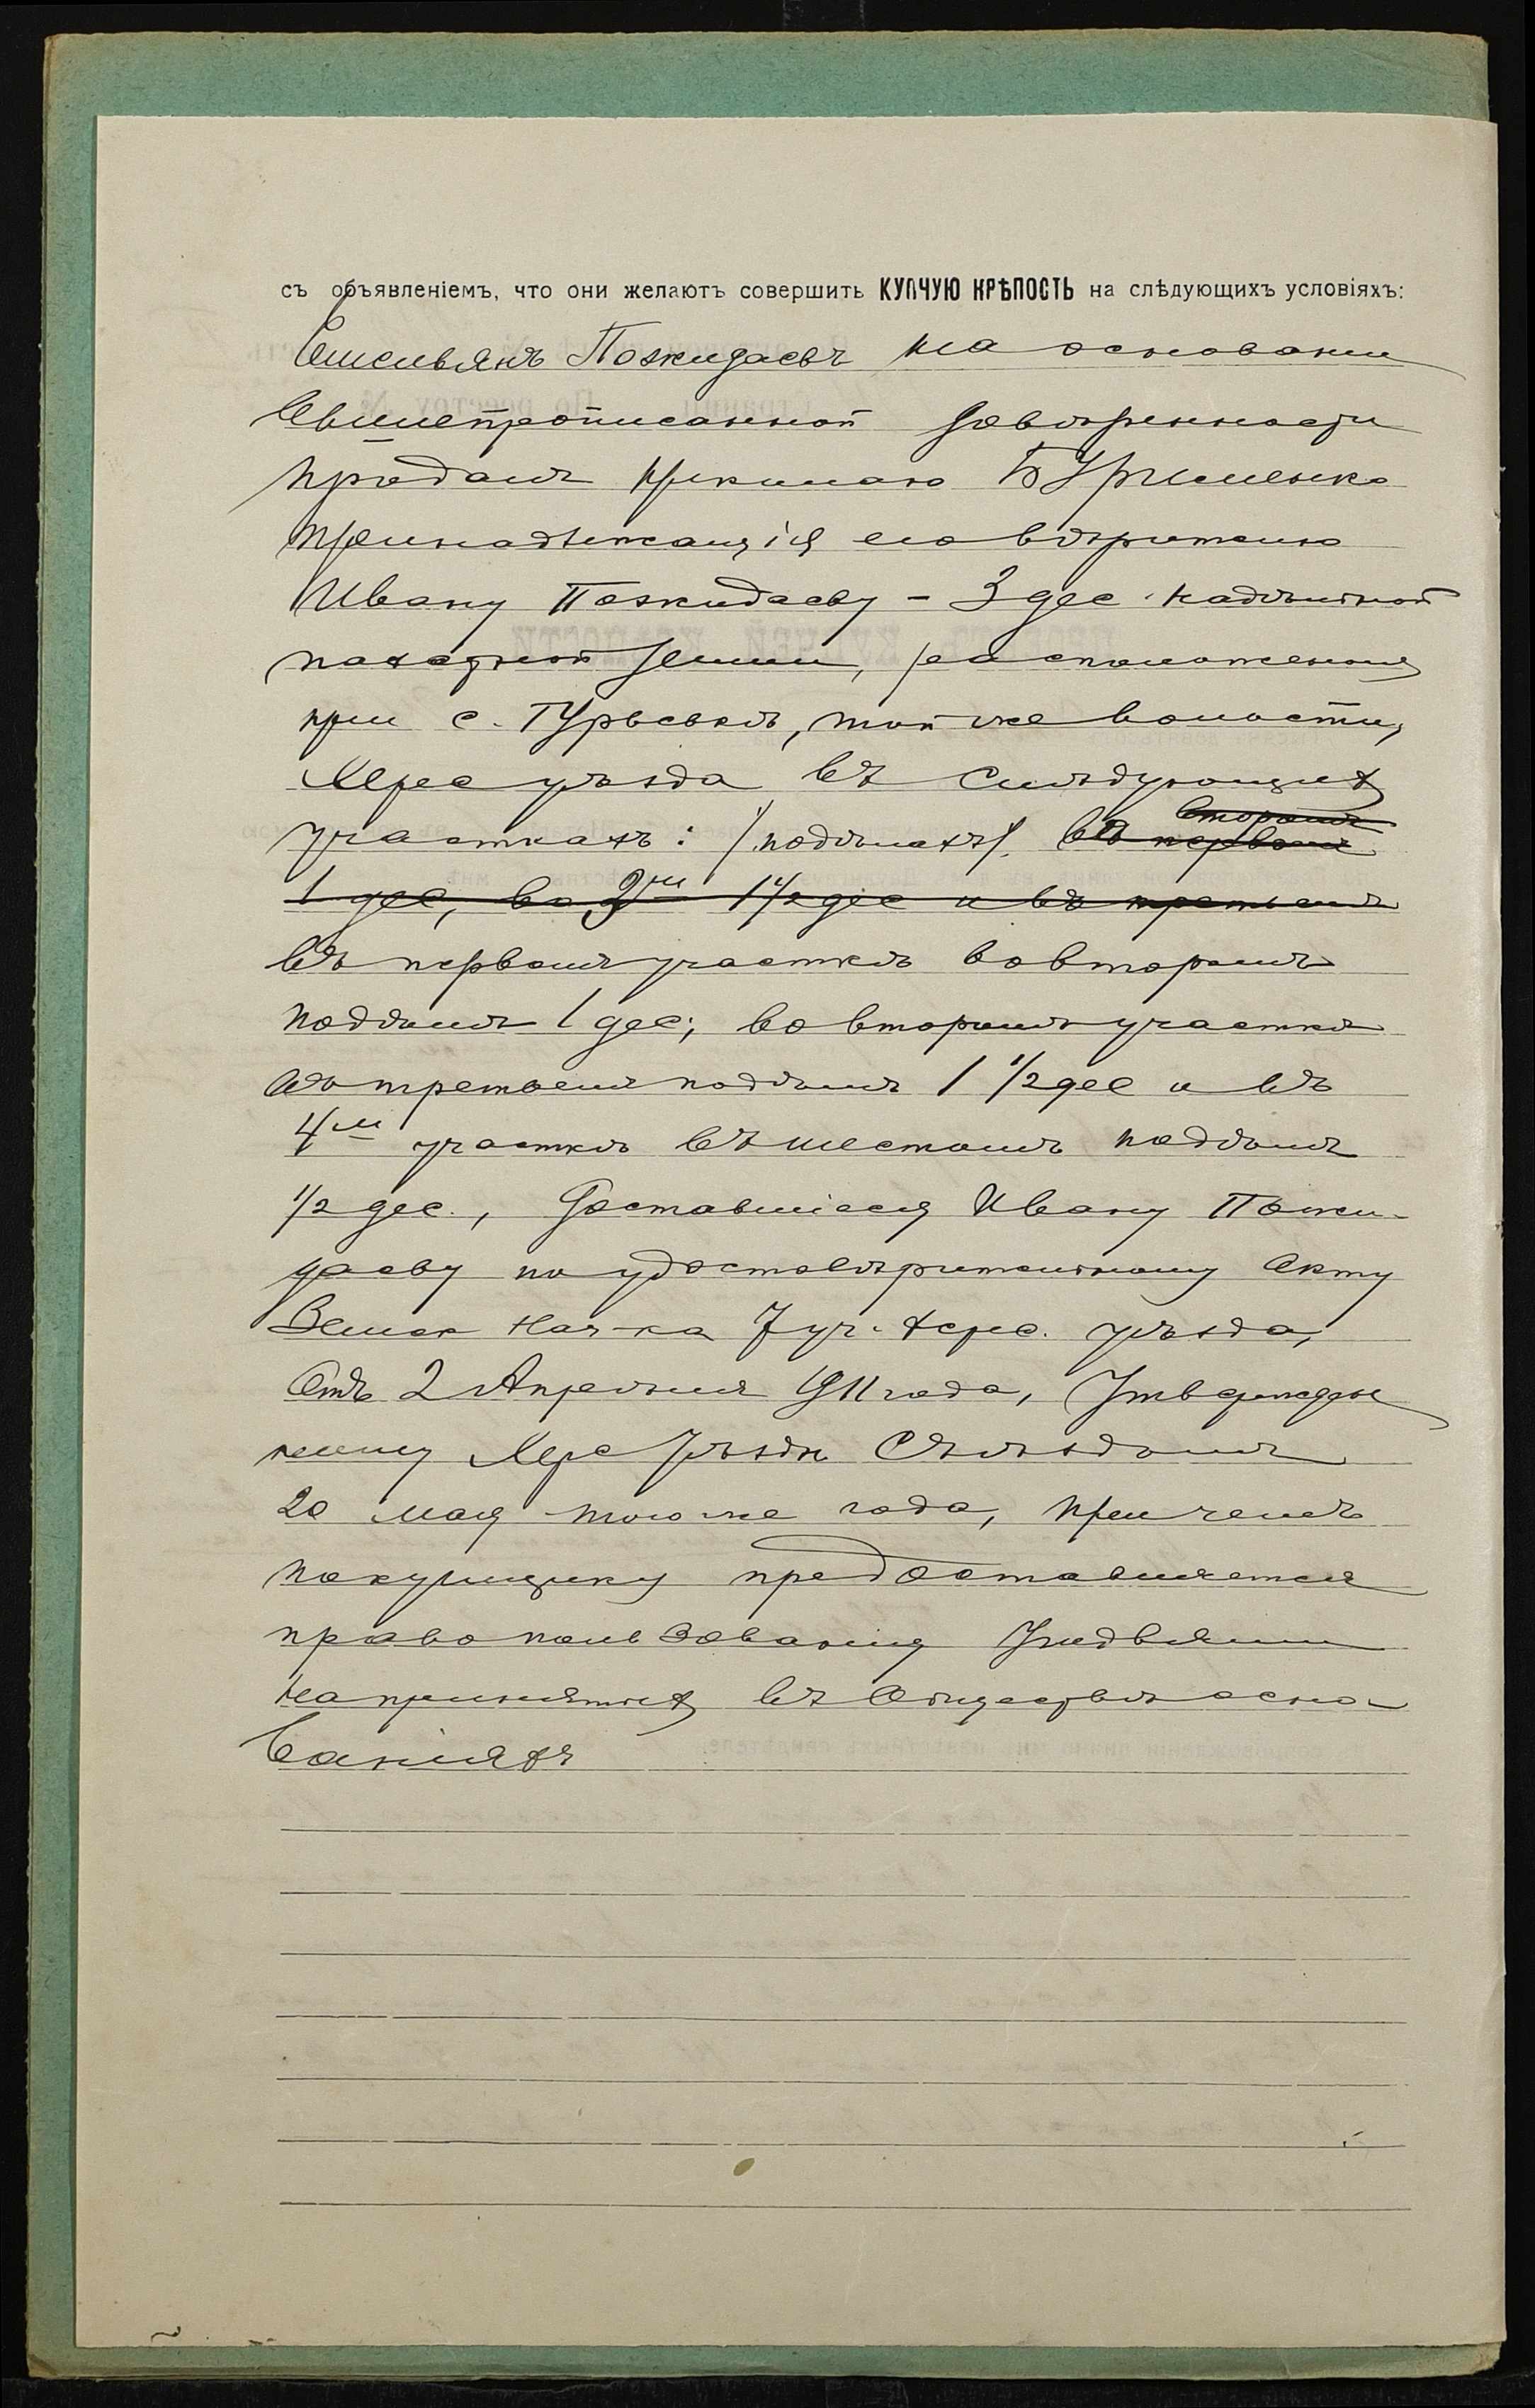 съ объявленіемъ, что они желаютъ совершить КУПЧУЮ КРѢПОСТЬ на слѣдующихъ условіяхъ:
Емельянъ Пожидаевъ на основании
вышепрописанной довѣренности
продалъ Бурименко
принадлежащія его вѣрителю
Ивану Пожидаеву - 3 дес. надѣльной
пахатной земли, расположенныя
при с. Гурьевкѣ, той же волости,
Херс уѣзда въ слѣдующихъ
участкахъ: /подѣлахъ/. въ первомъ вторымъ
1 дес, во 2мъ 1 1/2 дес и въ третьемъ
въ первомъ участкѣ во второмъ
подѣлѣ 1 дес; во второмъ участкѣ
въ третьемъ подѣлѣ 1 1/2 дес и въ
4мъ участкѣ въ шестомъ подѣлѣ
1/2 дес., доставшіеся Ивану Пожи-
даеву по удостовѣрительному акту
Земск Нач-ка 7 уч. Херс. уѣзда,
отъ 2 Апрѣля 1911 года, утвержден
ному Херс Уѣздн Съѣздомъ
20 мая того же года, при чемъ
покупщику предоставляется
право пользованія угодьями
на принятыхъ въ обществѣ осно-
ваніяхъ